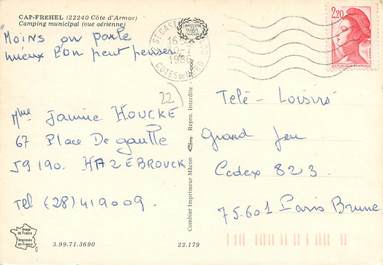 CAP-FREHEL (22240 Côte d'Armor)
Camping municipal (vue aérienne)
Moins on parle
mieux l'on peut penser
2,20
22
Mme Janine HOUCKE
67 Place De gaulle
59190. HAZEBROUCK
Tel (28) 419009.
Télé-Loisirs
Grand Jeu
Cedex 823.
75.601 Paris Brune
Combier Imprimeur Mâcon
Repro. Interdite
Image de France
Imprimée en France
3.99.71.3690
22.179